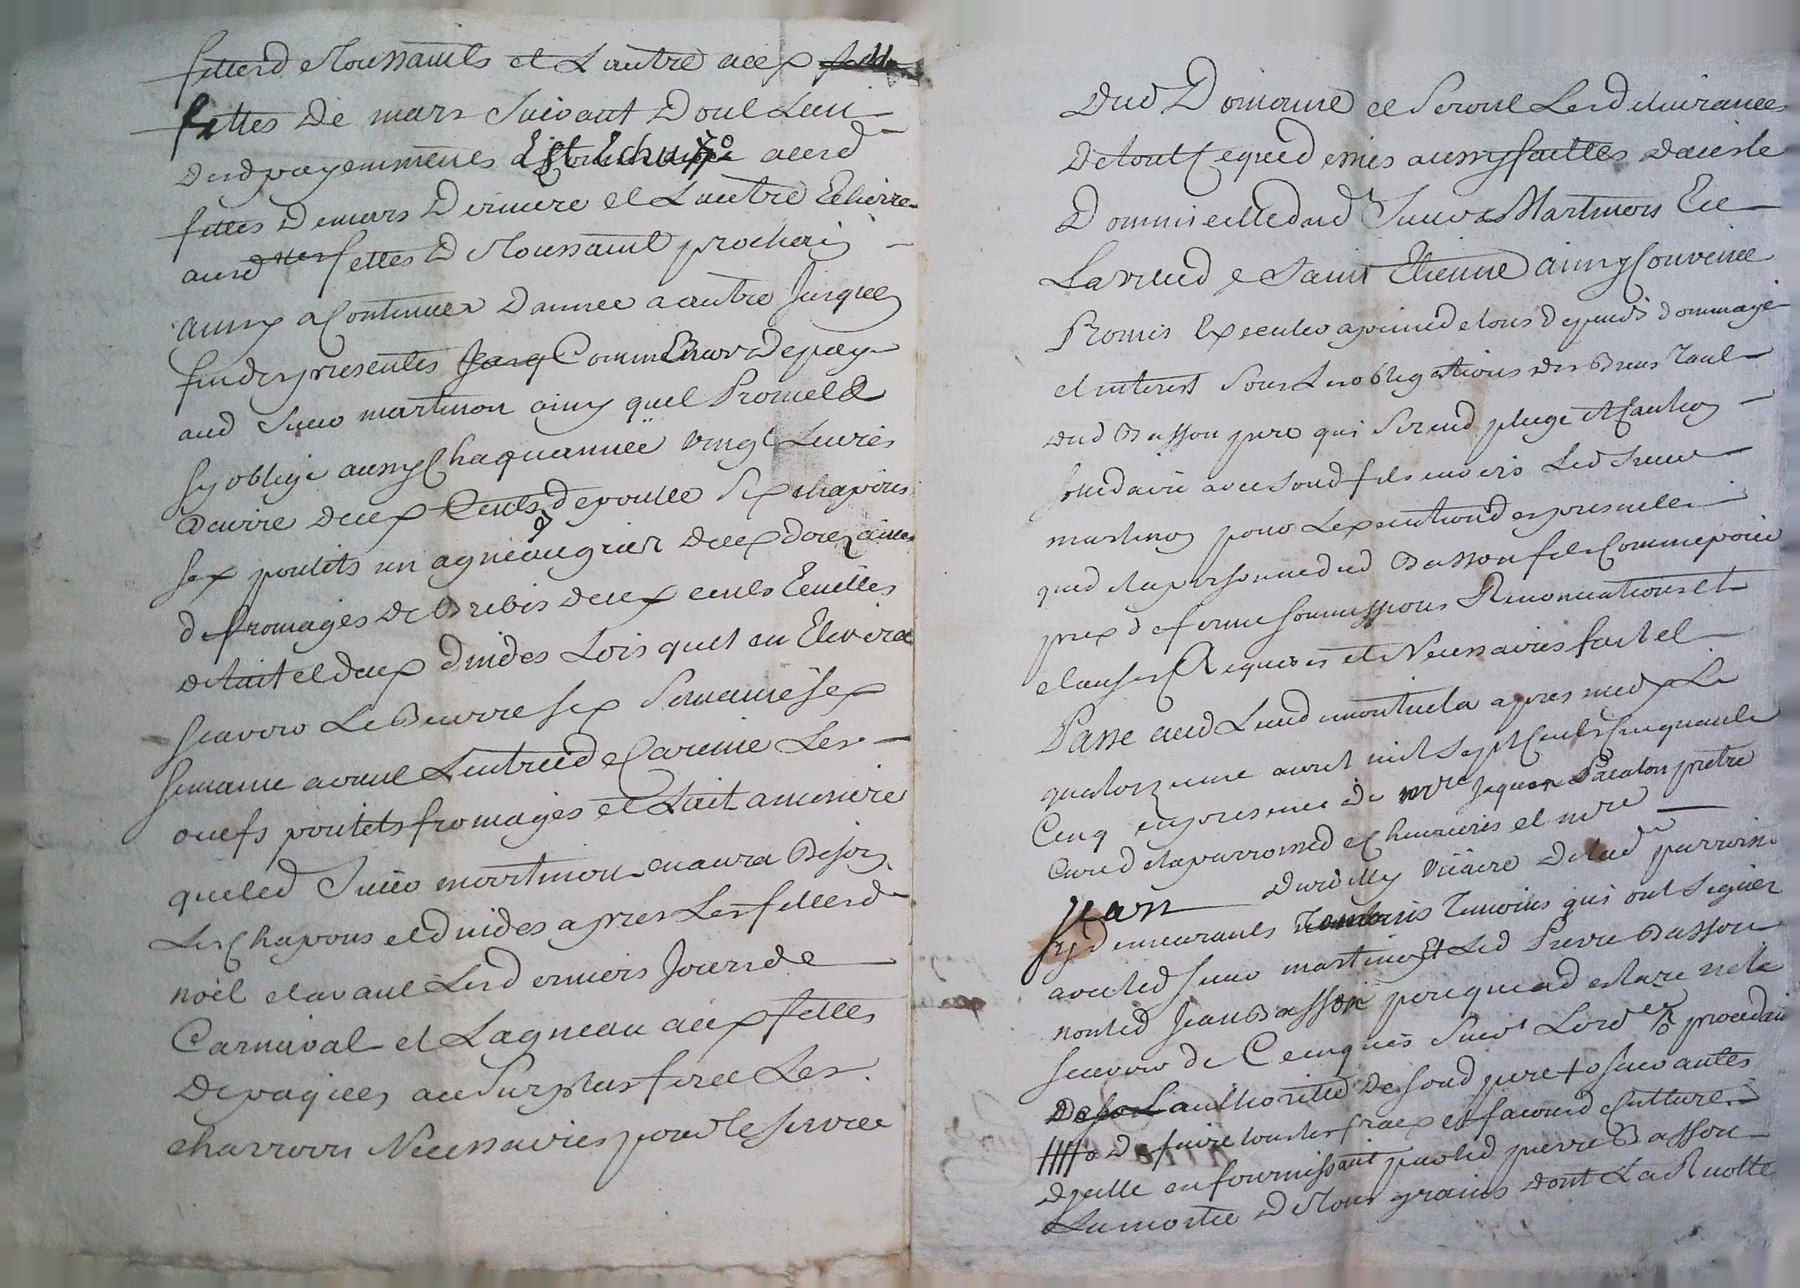 fettes de Toussaints et Lautre aux
fettes De mars Suivant Doul Lun
Desd payemments Est Echu auxd
fettes De mars Derniere et Lautre Echerra
auxd fettes De Toussaint prochain
ainsy a Continuer Dannee a autre Jusques
fin des presentes Comm De paye
aud Sieur martinon ainsy quil Promet et
sy oblige aussy Chaquannée vingt Livres
Beurre deux Cents de poulle Six chapons
six poulets un agneau gras deux douzaines
de fromages de Brebis deux cents Ceuilles
de lait et deux dindes Lois quil en Elevera
scavoir Le Beurre six Semaine six
semaine avant Lentree de Careme Les
oeufs poulets fromages et Lait a mesure
que led Sieur martinon en aura Besoin
Les Chapons et dindes apres Les fettes de
noel et avant Les derniers Jours de
Carnaval et Lagneau aux fettes
De paques au Surplus fera Les
charrois Necessaires pour le service
dud Domaine et Seront Les delivrances
De tout Ce que dessus aussy faittes dans le
Dommicille dud Sieur Martinon En
La ville de Saint Etienne ainsy Convenu
Promis Executer a peine de tous depends dommage
et interest Sous Les obligations des Biens tant
dud Basson pere qui Se rend plege et Caution
solidaire avec sond fils envers Led Sieur
martinon pour Lexecution des presentes
que de la personne dud Basson fils Comme pour
prix de ferme soumissions Renonciations et
clauses Requises et Necessaires fait et
Passe aud Lieu de apres midy Le
quatorzieme avril mil Sept Cents Cinquante
Cinq en presence de mre Jaques prêtre
Curé de la parroisse de et mre
Jean vicaire De lad parroisse
sy demeurants Temoins qui ont signer
avec led Sieur martinon Et Led Pierre Basson
non led Jean Basson pour que
scavoir de Ce enquis
De Lauthorité De sond pere
De faire tous les fraix et facons de Culture
dicelle en fournissant par led pierre Basson
La moitie De Tous grains dont La Recolte